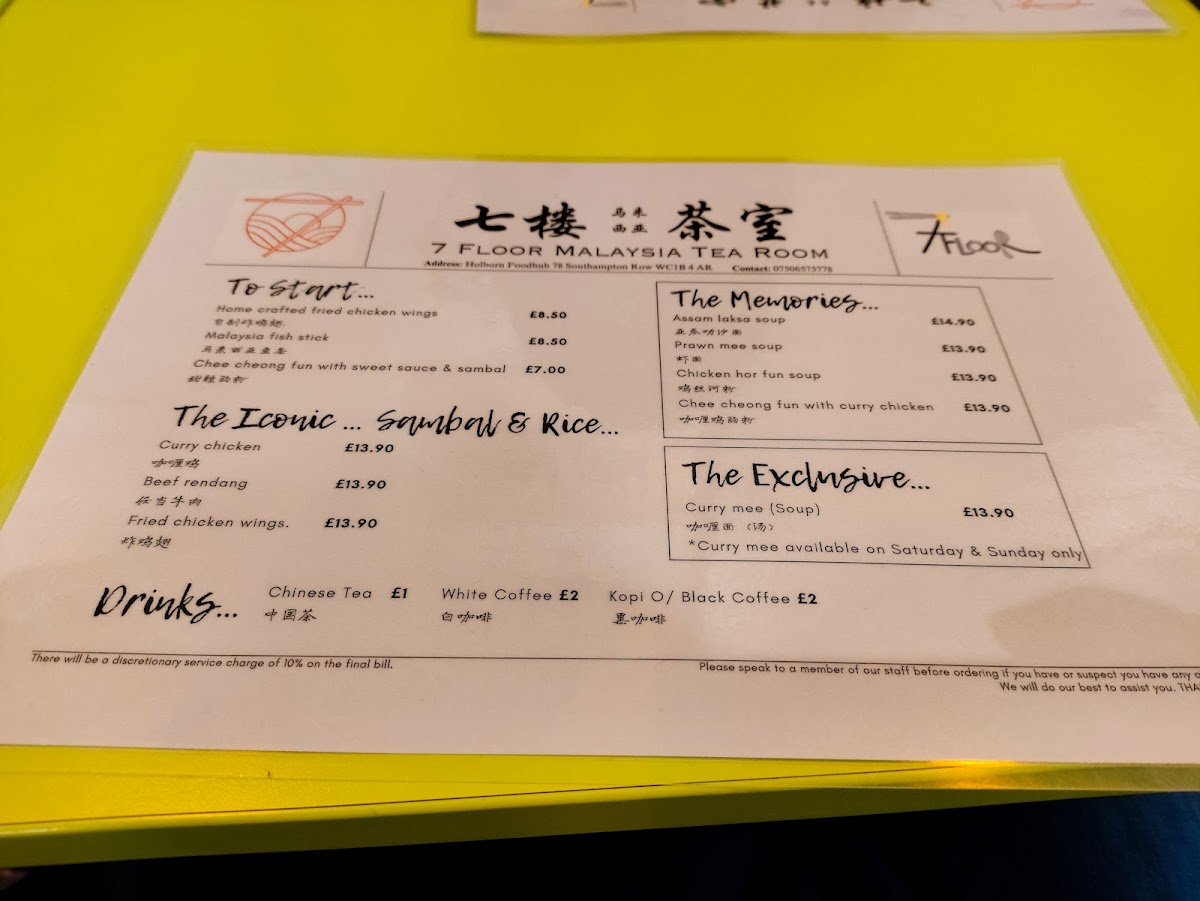 七楼 马来西亚 茶室
7 FLOOR MALAYSIA TEA ROOM
Address: Holborn Foodhub 78 Southampton Row WC1B 4 AR Contact: 07506575778
7 FLOOR
To Start...
Home crafted fried chicken wings £8.50
自制炸鸡翅.
Malaysia fish stick £8.50
马来西亚鱼条
Chee cheong fun with sweet sauce & sambal £7.00
甜辣肠粉
The Iconic ... Sambal & Rice...
Curry chicken £13.90
咖喱鸡
Beef rendang £13.90
任当牛肉
Fried chicken wings. £13.90
炸鸡翅
The Memories...
Assam laksa soup £14.90
亚参叻沙面
Prawn mee soup £13.90
虾面
Chicken hor fun soup £13.90
鸡丝河粉
Chee cheong fun with curry chicken £13.90
咖喱鸡肠粉
The Exclusive...
Curry mee (Soup) £13.90
咖喱面（汤）
*Curry mee available on Saturday & Sunday only
Drinks...
Chinese Tea £1 White Coffee £2 Kopi O/ Black Coffee £2
中国茶 白咖啡 黑咖啡
There will be a discretionary service charge of 10% on the final bill.
Please speak to a member of our staff before ordering if you have or suspect you have any
We will do our best to assist you.